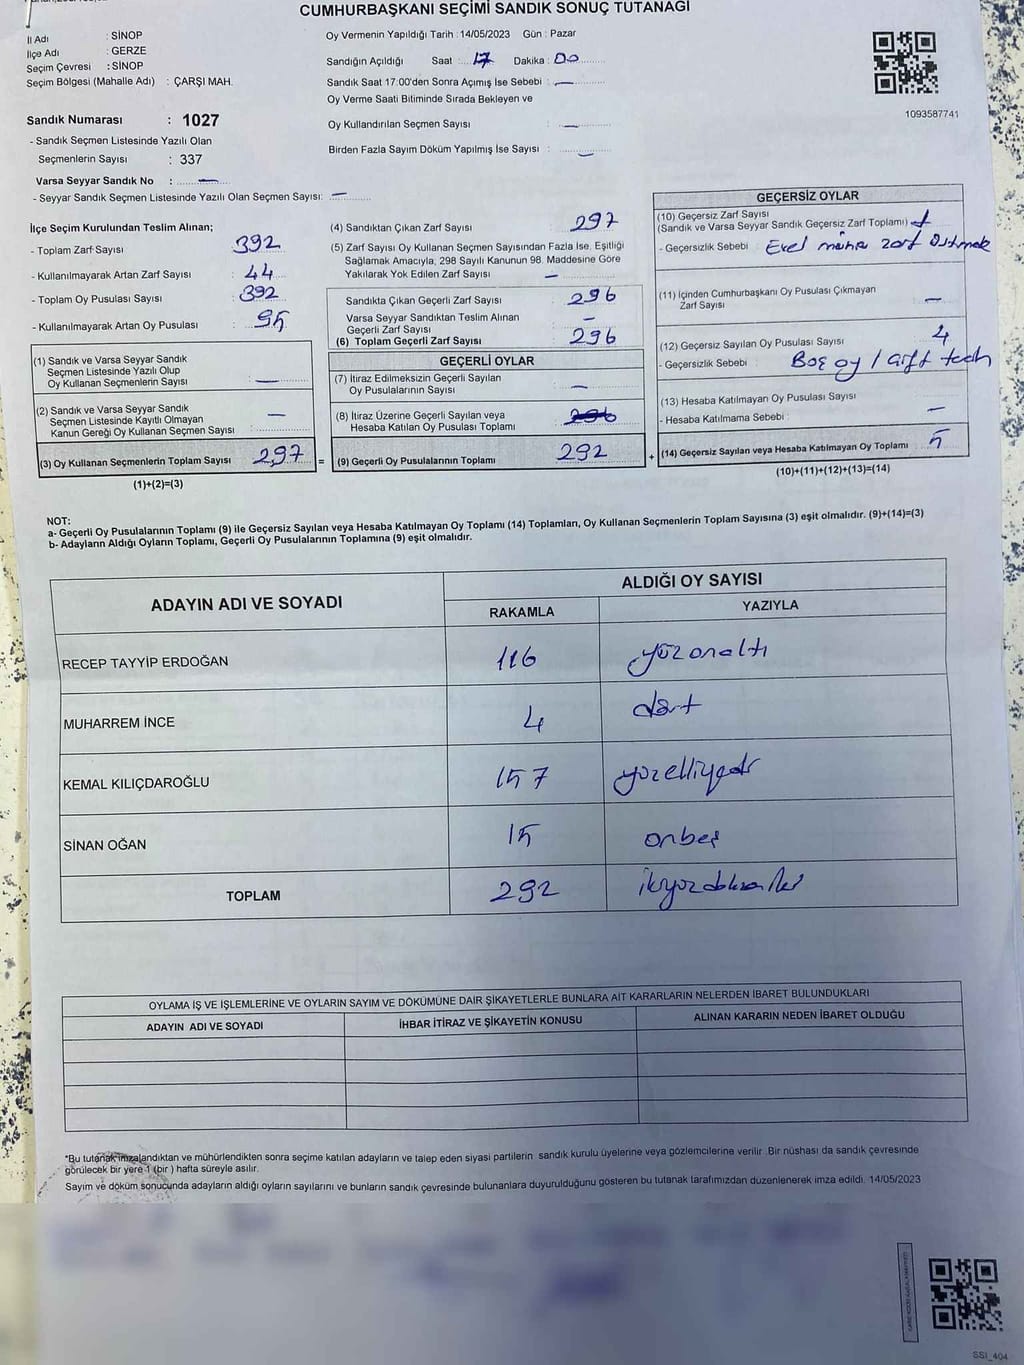 CUMHURBAŞKANI SEÇİMİ SANDIK SONUÇ TUTANAĞI
İl Adı : SİNOP
İlçe Adı : GERZE
Seçim Çevresi : SİNOP
Seçim Bölgesi (Mahalle Adı) : ÇARŞI MAH.
Sandık Numarası : 1027
- Sandık Seçmen Listesinde Yazılı Olan
Seçmenlerin Sayısı : 337
Varsa Seyyar Sandık No : —
- Seyyar Sandık Seçmen Listesinde Yazılı Olan Seçmen Sayısı: —
Oy Vermenin Yapıldığı Tarih : 14/05/2023 Gün : Pazar
Sandığın Açıldığı Saat : 17 Dakika : 00
Sandık Saat 17.00'den Sonra Açımış İse Sebebi : —
Oy Verme Saati Bitiminde Sırada Bekleyen ve
Oy Kullandırılan Seçmen Sayısı : —
Birden Fazla Sayım Döküm Yapılmış İse Sayısı : —
1093587741
İlçe Seçim Kurulundan Teslim Alınan;
- Toplam Zarf Sayısı : 392
- Kullanılmayarak Artan Zarf Sayısı : 44
- Toplam Oy Pusulası Sayısı : 392
- Kullanılmayarak Artan Oy Pusulası : 95
(1) Sandık ve Varsa Seyyar Sandık
Seçmen Listesinde Yazılı Olup
Oy Kullanan Seçmenlerin Sayısı : —
(2) Sandık ve Varsa Seyyar Sandık
Seçmen Listesinde Kayıtlı Olmayan
Kanun Gereği Oy Kullanan Seçmen Sayısı : —
(3) Oy Kullanan Seçmenlerin Toplam Sayısı 297 =
(1)+(2)=(3)
(4) Sandıktan Çıkan Zarf Sayısı : 297
(5) Zarf Sayısı Oy Kullanan Seçmen Sayısından Fazla İse, Eşitliği
Sağlamak Amacıyla, 298 Sayılı Kanunun 98. Maddesine Göre
Yakılarak Yok Edilen Zarf Sayısı : —
Sandıkta Çıkan Geçerli Zarf Sayısı : 296
Varsa Seyyar Sandıktan Teslim Alınan
Geçerli Zarf Sayısı : —
(6) Toplam Geçerli Zarf Sayısı : 296
GEÇERLİ OYLAR
(7) İtiraz Edilmeksizin Geçerli Sayılan
Oy Pusulalarının Sayısı : —
(8) İtiraz Üzerine Geçerli Sayılan veya
Hesaba Katılan Oy Pusulası Toplamı : 296
(9) Geçerli Oy Pusulalarının Toplamı : 292 +
GEÇERSİZ OYLAR
(10) Geçersiz Zarf Sayısı
(Sandık ve Varsa Seyyar Sandık Geçersiz Zarf Toplamı) : 1
- Geçersizlik Sebebi : Evet mührü zarf üstünde
(11) İçinden Cumhurbaşkanı Oy Pusulası Çıkmayan
Zarf Sayısı : —
(12) Geçersiz Sayılan Oy Pusulası Sayısı : 4
- Geçersizlik Sebebi : Boş oy / çift
(13) Hesaba Katılmayan Oy Pusulası Sayısı : —
- Hesaba Katılmama Sebebi :
(14) Geçersiz Sayılan veya Hesaba Katılmayan Oy Toplamı : 5
(10)+(11)+(12)+(13)=(14)
NOT:
a- Geçerli Oy Pusulalarının Toplamı (9) ile Geçersiz Sayılan veya Hesaba Katılmayan Oy Toplamı (14) Toplamları, Oy Kullanan Seçmenlerin Toplam Sayısına (3) eşit olmalıdır. (9)+(14)=(3)
b- Adayların Aldığı Oyların Toplamı, Geçerli Oy Pusulalarının Toplamına (9) eşit olmalıdır.
ADAYIN ADI VE SOYADI ALDIĞI OY SAYISI
RAKAMLA YAZIYLA
RECEP TAYYİP ERDOĞAN 116 yüzonaltı
MUHARREM İNCE 4 dört
KEMAL KILIÇDAROĞLU 157 yüzelliyedi
SİNAN OĞAN 15 onbeş
TOPLAM 292 ikiyüzdoksaniki
OYLAMA İŞ VE İŞLEMLERİNE VE OYLARIN SAYIM VE DÖKÜMÜNE DAİR ŞİKAYETLERLE BUNLARA AİT KARARLARIN NELERDEN İBARET BULUNDUKLARI
ADAYIN ADI VE SOYADI İHBAR İTİRAZ VE ŞİKAYETİN KONUSU ALINAN KARARIN NEDEN İBARET OLDUĞU
*Bu tutanak imzalandıktan ve mühürlendikten sonra seçime katılan adayların ve talep eden siyasi partilerin sandık kurulu üyelerine veya gözlemcilerine verilir .Bir nüshası da sandık çevresinde
görülecek bir yere 1 (bir ) hafta süreyle asılır.
Sayım ve döküm sonucunda adayların aldığı oyların sayılarını ve bunların sandık çevresinde bulunanlara duyurulduğunu gösteren bu tutanak tarafımızdan düzenlenerek imza edildi. 14/05/2023
SSI_404